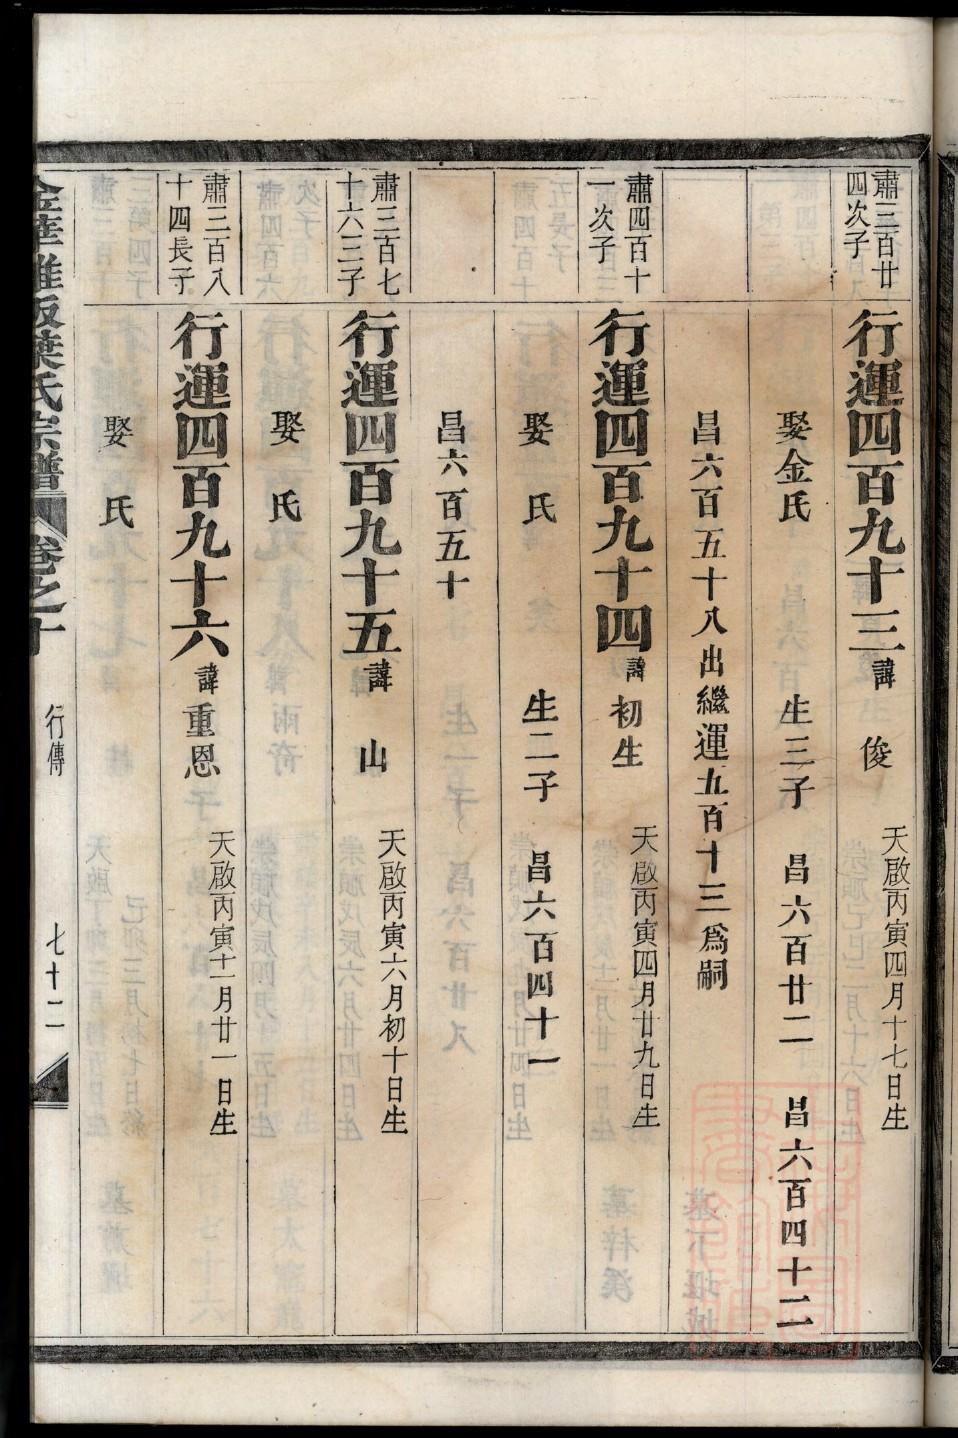 肅三百廿
四次子
行運四百九十三 諱 俊 天啟丙寅四月十七日生
娶金氏 生三子 昌六百廿二 昌六百四十二
昌六百五十八出繼運五百十三為嗣
肅四百十
一次子
行運四百九十四 諱 初生 天啟丙寅四月廿九日生
娶 氏 生二子 昌六百四十一
昌六百五十
肅三百七
十六三子
行運四百九十五 諱 山 天啟丙寅六月初十日生
娶 氏
肅三百八
十四長子
行運四百九十六 諱 重恩 天啟丙寅十一月廿一日生
娶 氏
葉氏宗譜 卷之十 行傳 七十二